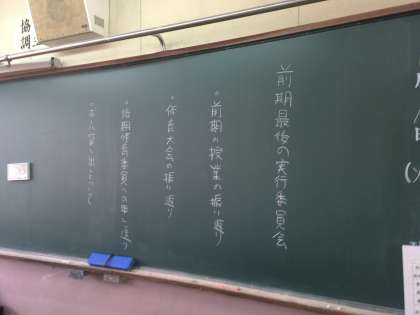 前期最後の実行委員会
・前期の授業の振り返り
・体育大会の振り返り
・後期体育委員への申し送り
・ボール貸し出しについて
協調